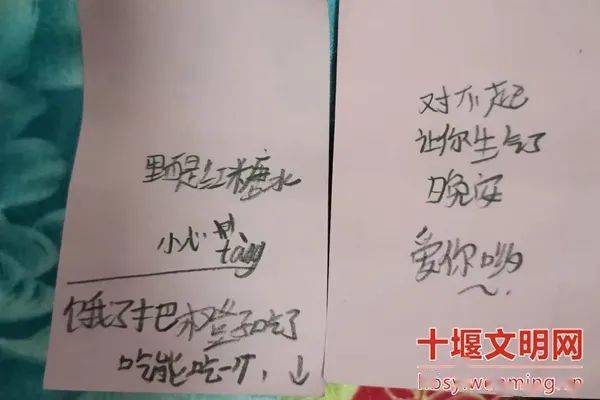 里面是红糖水
小心 tang
饿了把橙子吃了
只能吃一个，↓
对不起
让你生气了
晚安
爱你哟
～.
十堰文明网
hbsy.wenming.cn